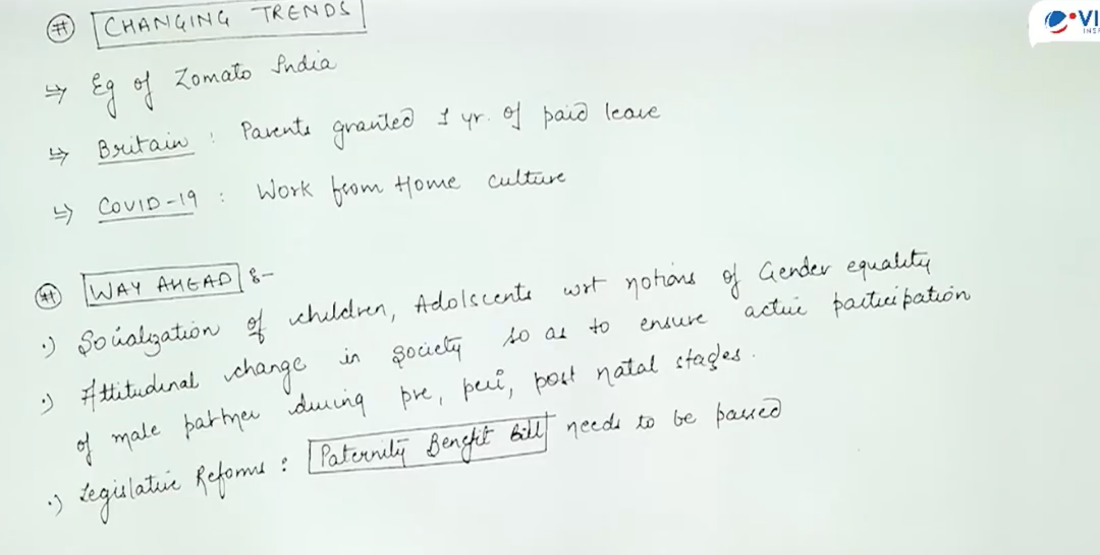 # CHANGING TRENDS
VI
INS
⇒ Eg of Zomato India
⇒ Britain : Parents granted 1 yr. of paid leave
⇒ COVID-19 : Work from Home culture
# WAY AHEAD :-
•) Socialization of children, Adolscents wrt notions of Gender equality
•) Attitudinal change in society so as to ensure active participation
of male partner during pre, peri, post natal stages.
•) Legislative Reforms : Paternity Benefit Bill needs to be passed